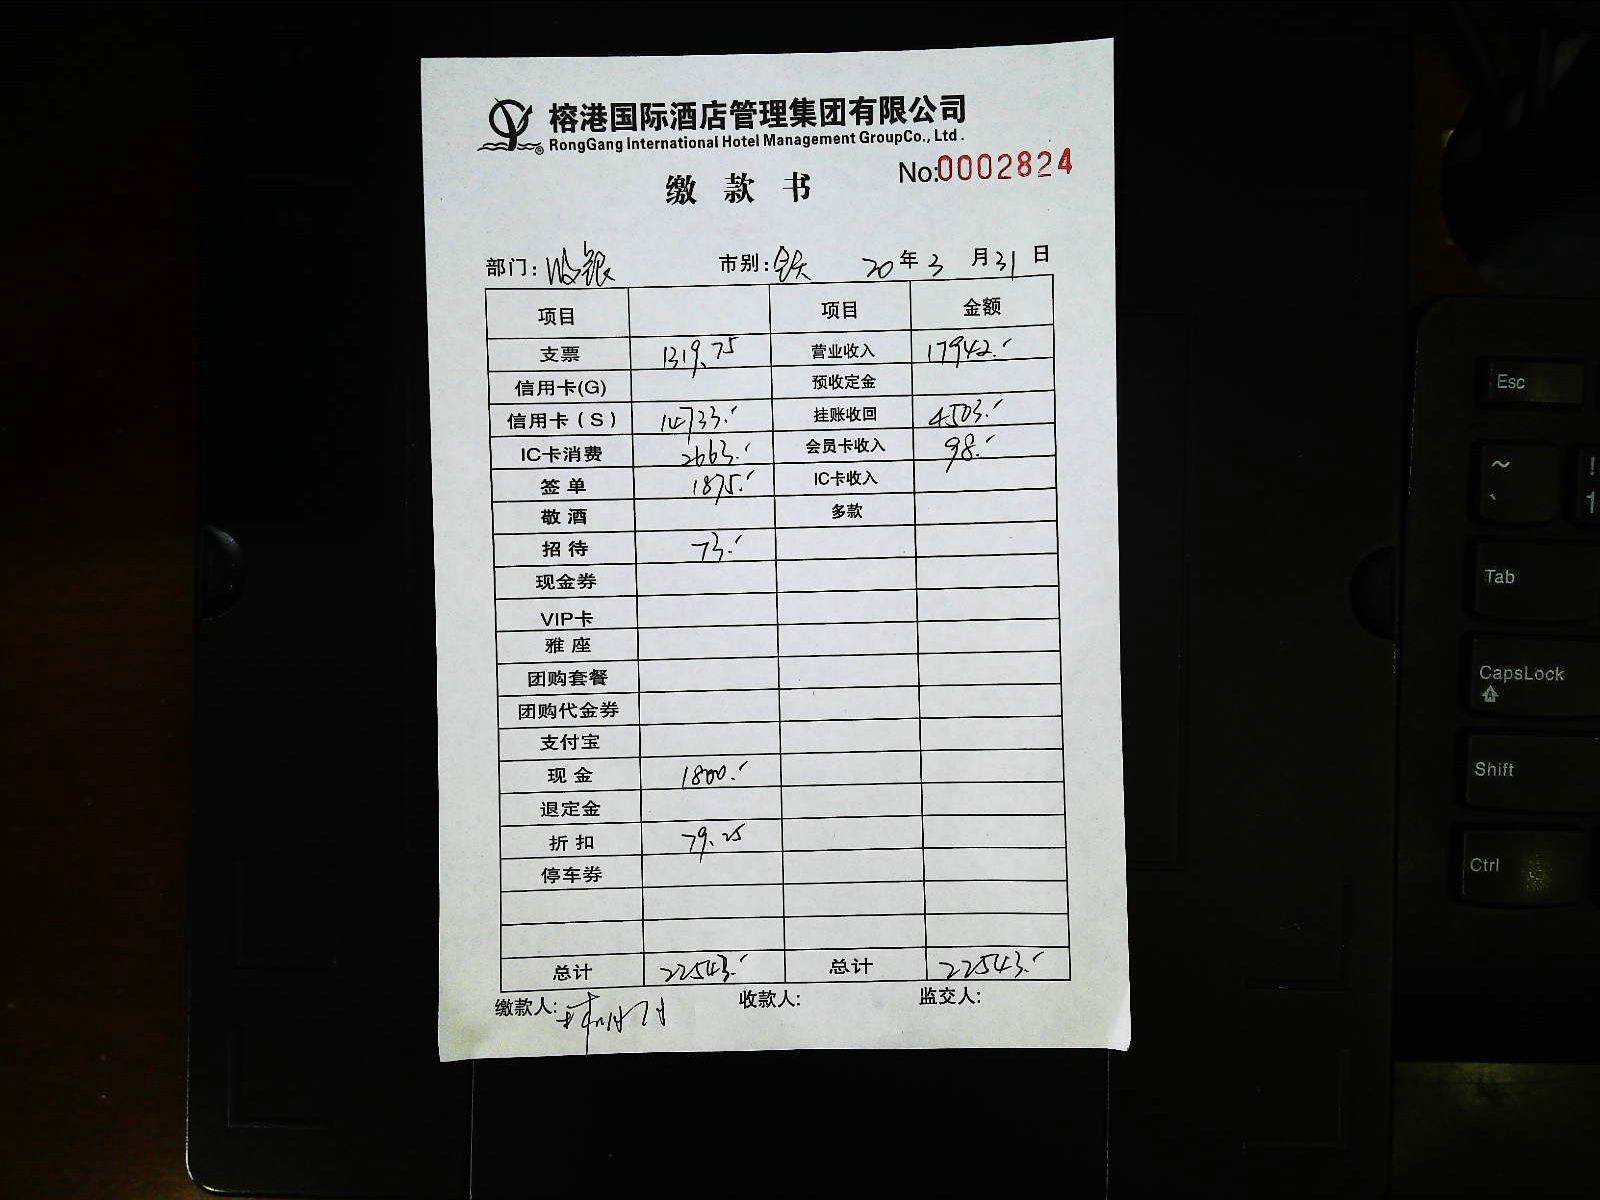 榕港国际酒店管理集团有限公司
RongGang International Hotel Management GroupCo., Ltd.
No:0002824
缴款书
部门: 收银 市别: 全天 20年3月31日
项目 项目 金额
支票 1319.75 营业收入 17942.-
信用卡(G) 预收定金
信用卡(S) 14733.- 挂账收回 4503.-
IC卡消费 2663.- 会员卡收入 98.-
签单 1875.- IC卡收入
敬酒 多款
招待 73.-
现金券
VIP卡
雅座
团购套餐
团购代金券
支付宝
现金 1800.-
退定金
折扣 79.25
停车券
总计 22543.- 总计 22543.-
缴款人: 收款人: 监交人:
Esc
~
`
!
1
Tab
CapsLock
Shift
Ctrl